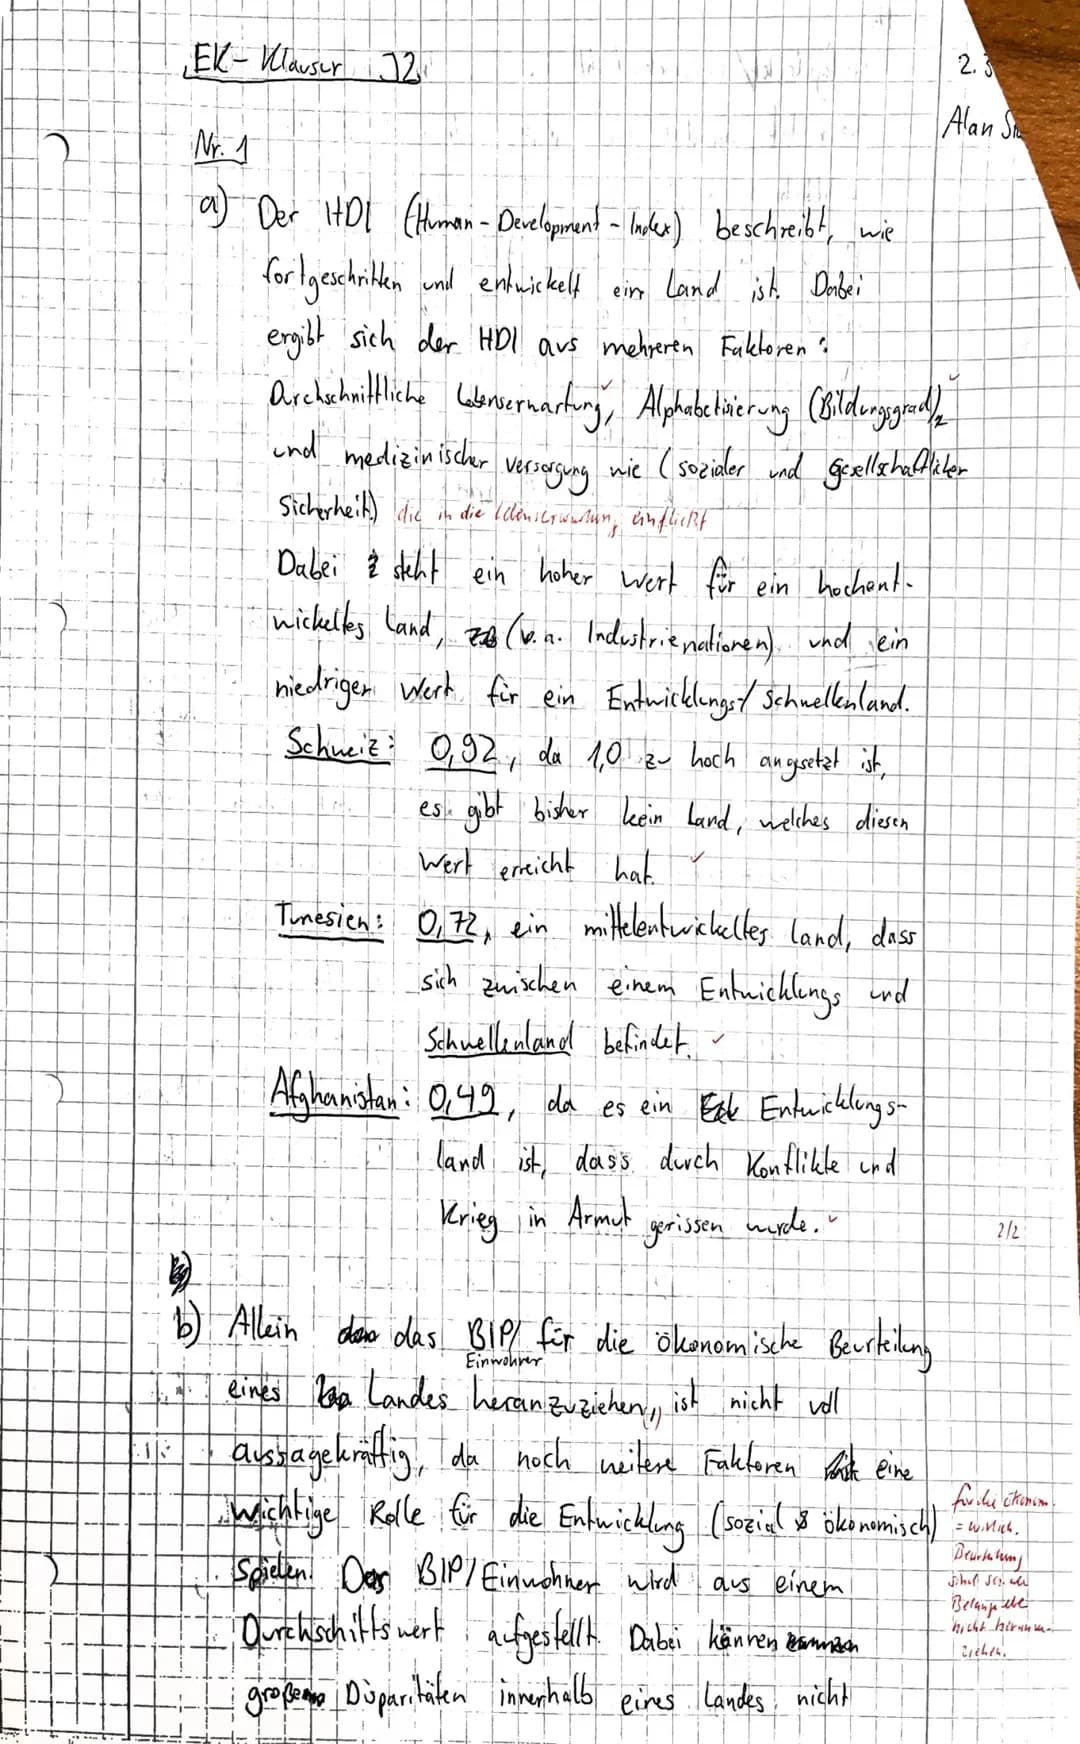 EK-Klausur J2
2.3
Alan
Nr. 1
a) Der HDI (Human-Development-Index) beschreibt, wie
fortgeschritten und entwickelt ein Land ist. Dabei
ergibt sich der HDI aus mehreren Faktoren:
Durchschnittliche Lebenserwartung, Alphabetisierung (Bildungsgrad),
und medizinischer Versorgung wie (sozialer und gesellschaftlicher
Sicherheit) die in die Lebenserwartung einfließt
Dabei steht ein hoher Wert für ein hochent-
wickeltes Land, (v.a. Industrienationen) und ein
niedriger Wert für ein Entwicklungs/Schwellenland.
Schweiz: 0,92, da 1,0 zu hoch angesetzt ist,
es gibt bisher kein Land, welches diesen
Wert erreicht hat.
Tunesien: 0,72, ein mittelentwickeltes Land, dass
sich zwischen einem Entwicklungs und
Schwellenland befindet.
Afghanistan: 0,49, da es ein Entwicklungs-
land ist, dass durch Konflikte und
Krieg in Armut gerissen wurde.
2/2
b) Allein das BIP/ für die ökonomische Beurteilung
Einwohner
eines Landes heranzuziehen, ist nicht voll
aussagekräftig, da noch weitere Faktoren eine
wichtige Rolle für die Entwicklung (sozial & ökonomisch)
spielen. Das BIP/Einwohner wird aus einem
Durchschittswert aufgestellt. Dabei können
große Disparitäten innerhalb eines Landes nicht
für die ökonom.
Beurteilung
Belange
nicht heranzu-
ziehen.